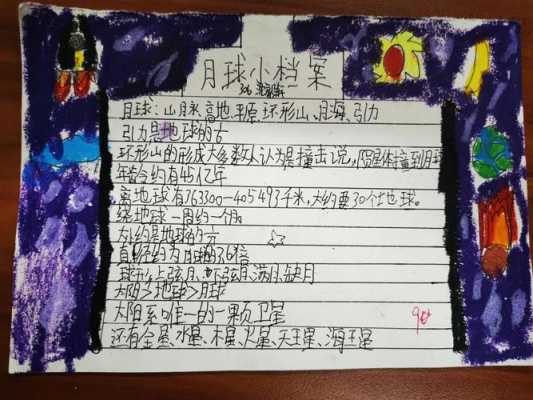 月球小档案
月球：山脉、高地、平原、环形山、月海、引力
引力是地球的
环形山的形成大多数人认为是撞击说，陨星体撞到月球
年龄约有45亿年
离地球有363300-405493千米，大约要30个地球。
绕地球一周约一个月
大小约是地球的
直径约为
球形、上弦月、下弦月、满月、缺月
太阳>地球>月球
太阳系唯一的一颗卫星
还有金星、水星、木星、火星、天王星、海王星